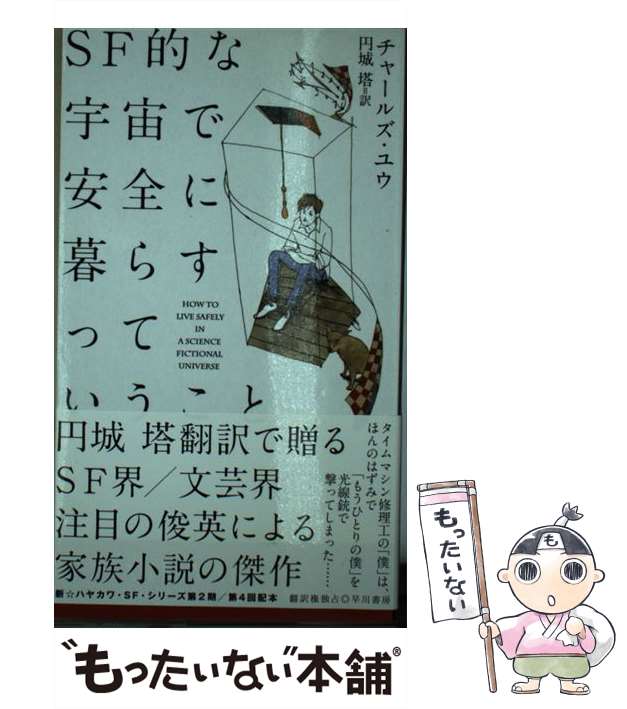 SF的な
宇宙で
安全に
暮らす
って
いうこと
チャールズ・ユウ
円城 塔=訳
HOW TO
LIVE SAFELY
IN
A SCIENCE
FICTIONAL
UNIVERSE
円城 塔翻訳で贈る
SF界/文芸界
注目の俊英による
家族小説の傑作
タイムマシン修理工の「僕」は、
ほんのはずみで
「もうひとりの僕」を
光線銃で
撃ってしまった……
新☆ハヤカワ・SF・シリーズ第2期/第4回配本
翻訳権独占◎早川書房
"もったいない"本舗®
もったいない
も